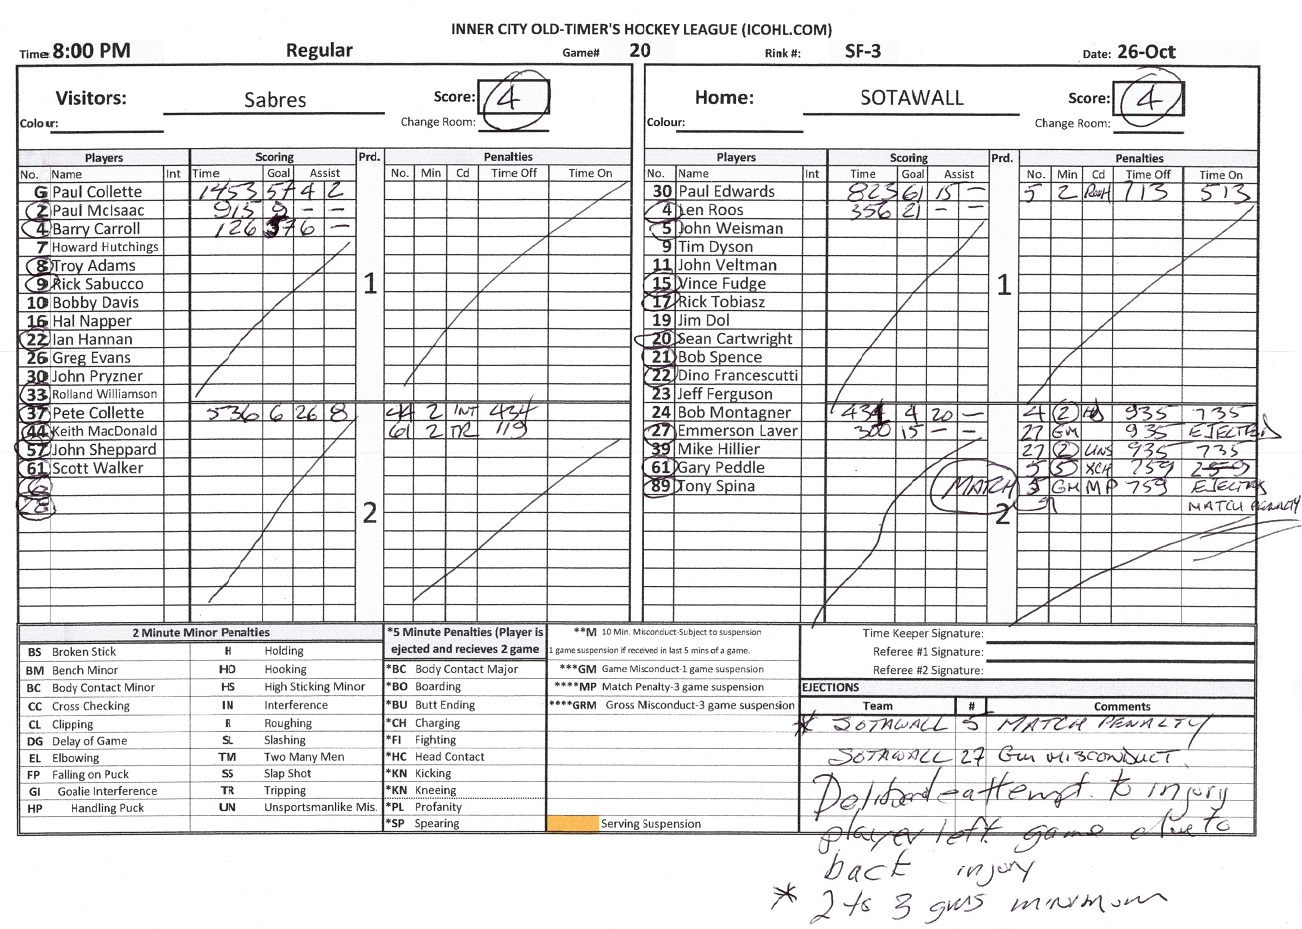 INNER CITY OLD-TIMER'S HOCKEY LEAGUE (ICOHL.COM)
Time: 8:00 PM Regular Game# 20 Rink #: SF-3 Date: 26-Oct
Visitors: Sabres Score: 4 Home: SOTAWALL Score: 4
Colour: Change Room: Colour: Change Room:
Players Scoring Prd. Penalties Players Scoring Prd. Penalties
No. Name Int Time Goal Assist No. Min Cd Time Off Time On No. Name Int Time Goal Assist No. Min Cd Time Off Time On
G Paul Collette 1453 57 4 2 30 Paul Edwards 823 61 15 - 5 2 713 513
2 Paul McIsaac 915 9 - - 4 Len Roos 356 21 - -
4 Barry Carroll 126 37 6 - 5 John Weisman
7 Howard Hutchings 9 Tim Dyson
8 Troy Adams 11 John Veltman
9 Rick Sabucco 1 15 Vince Fudge 1
10 Bobby Davis 17 Rick Tobiasz
16 Hal Napper 19 Jim Dol
22 Ian Hannan 20 Sean Cartwright
26 Greg Evans 21 Bob Spence
30 John Pryzner 22 Dino Francescutti
33 Rolland Williamson 23 Jeff Ferguson
37 Pete Collette 536 6 26 8 44 2 INT 434 24 Bob Montagner 434 4 20 - 4 2 935 735
44 Keith MacDonald 61 2 TR 119 27 Emmerson Laver 300 15 - - 27 GM 935 EJECTED
57 John Sheppard 39 Mike Hillier 27 2 UNS 935 735
61 Scott Walker 61 Gary Peddle 5 5 XCH 759 259
6 89 Tony Spina MATCH 5 GM MP 759 EJECTED
2 2 MATCH PENALTY
2 Minute Minor Penalties *5 Minute Penalties (Player is **M 10 Min. Misconduct-Subject to suspension Time Keeper Signature:
BS Broken Stick H Holding ejected and recieves 2 game 1 game suspension if received in last 5 mins of a game. Referee #1 Signature:
BM Bench Minor HO Hooking *BC Body Contact Major ***GM Game Misconduct-1 game suspension Referee #2 Signature:
BC Body Contact Minor HS High Sticking Minor *BO Boarding ****MP Match Penalty-3 game suspension EJECTIONS
CC Cross Checking IN Interference *BU Butt Ending ****GRM Gross Misconduct-3 game suspension Team # Comments
CL Clipping R Roughing *CH Charging * SOTAWALL 5 MATCH PENALTY
DG Delay of Game SL Slashing *FI Fighting
EL Elbowing TM Two Many Men *HC Head Contact SOTAWALL 27 GM MISCONDUCT.
FP Falling on Puck SS Slap Shot *KN Kicking
GI Goalie Interference TR Tripping *KN Kneeing attempt to injury
HP Handling Puck UN Unsportsmanlike Mis. *PL Profanity
*SP Spearing Serving Suspension player left game due to
back injury
* 2 to 3 gms minimum